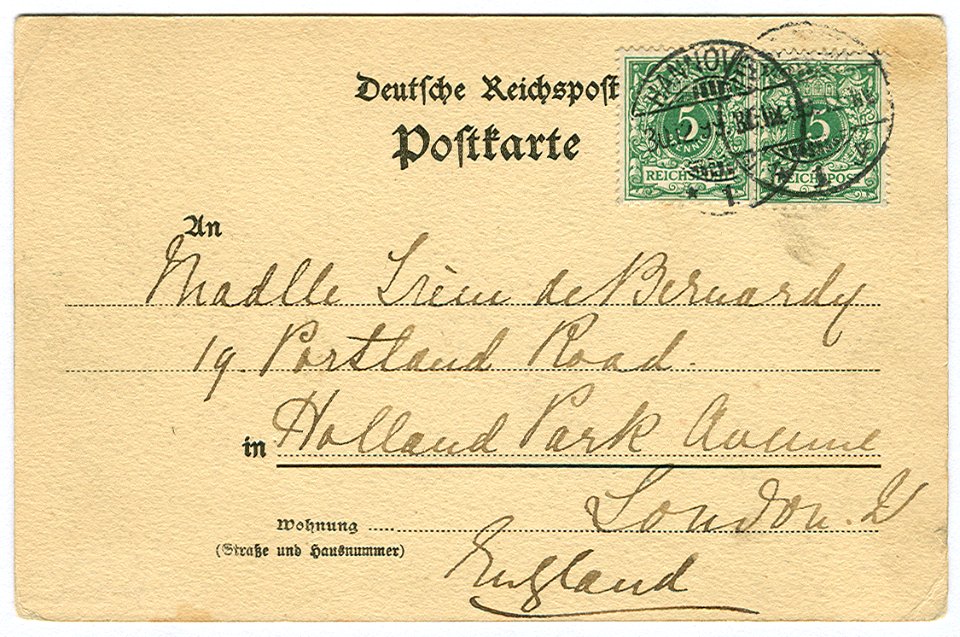 Deutsche Reichspost
Postkarte
HANNOVER
5
5
REICHSPOST
REICHSPOST
* 1
* 1
An
Madlle de Bernardy
19. Portland Road.
in Holland Park Avenue
London. W
Wohnung
(Straße und Hausnummer)
England